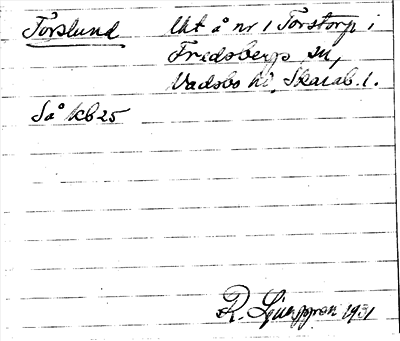 Torslund Urt å nr 1 Torstorp i
Fredsbergs sn,
Vadsbo hd, Skarab. l.
Så kb 25
R. Ljunggren 1931